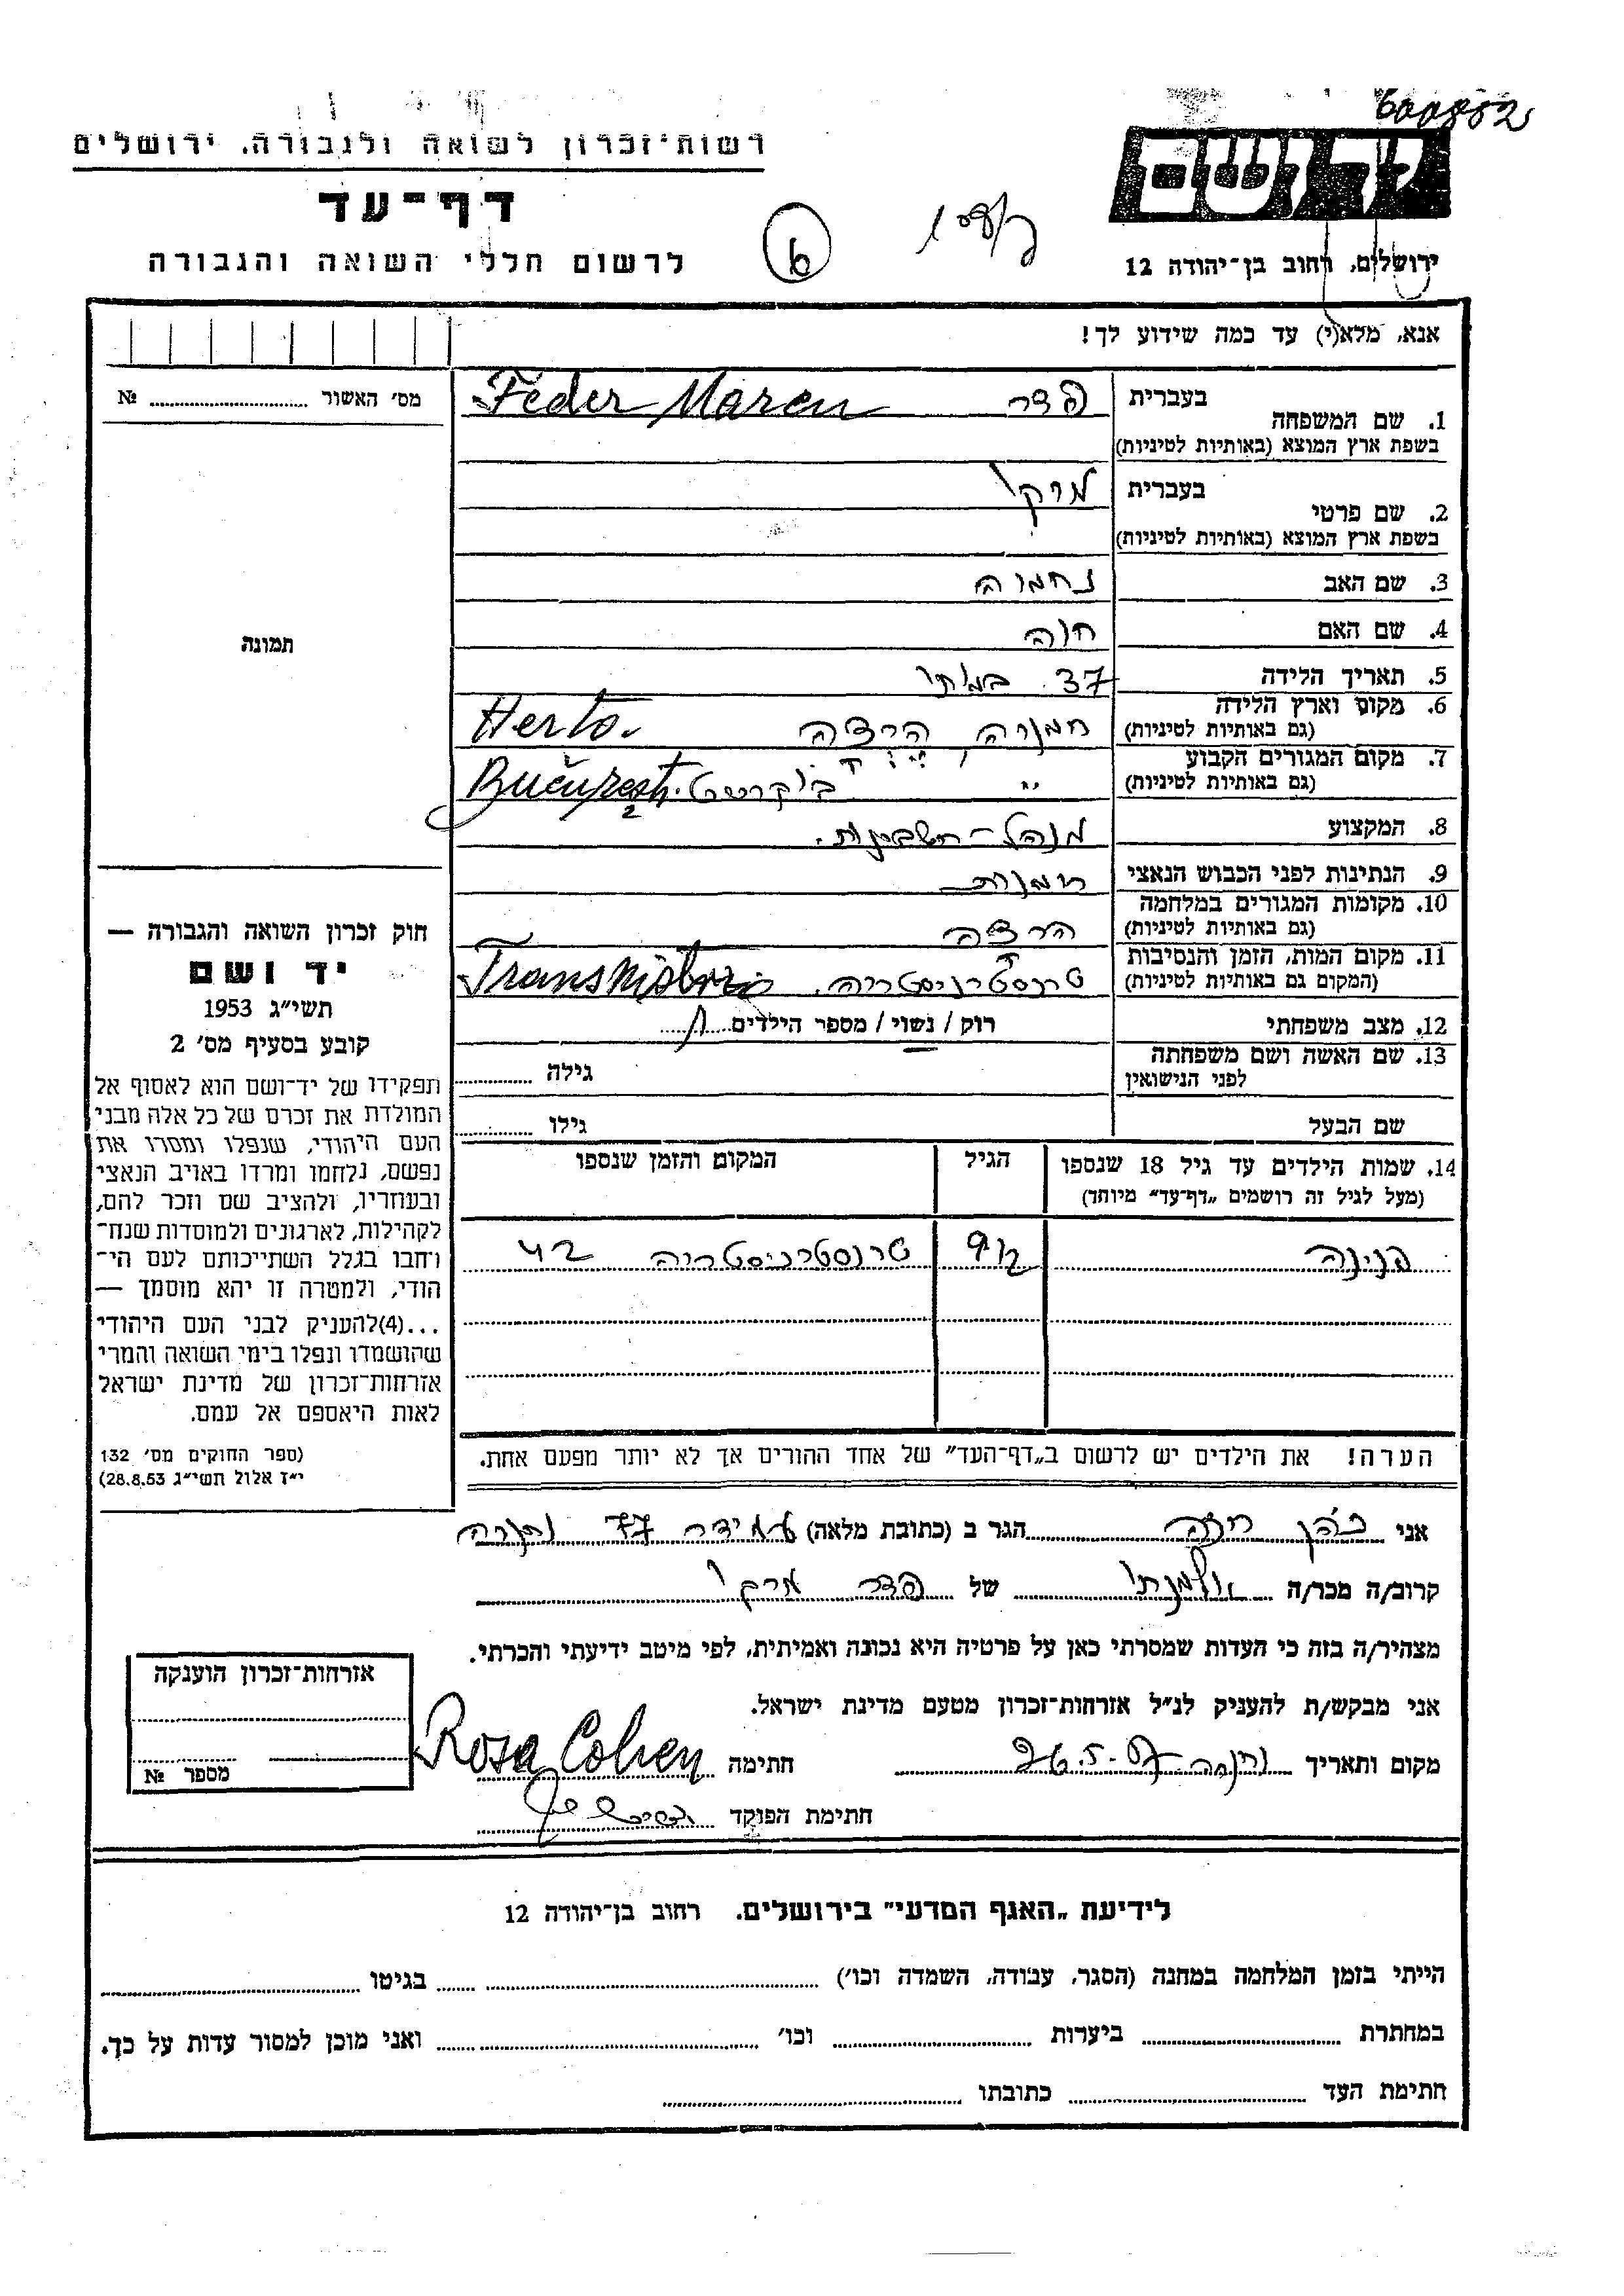 600852
רשות־זכרון לשואה ולגבורה. ירושלים
יד ושם
דף־עד
6
לרשום חללי השואה והגבורה
ירושלים, רחוב בן־יהודה 12
אנא, מלא(י) עד כמה שידוע לך!
מס׳ האשור № 
בעברית פדר Feder Marcu
1. שם המשפחה
בשפת ארץ המוצא (באותיות לטיניות)
בעברית מרקו
2. שם פרטי
בשפת ארץ המוצא (באותיות לטיניות)
3. שם האב נחמיה
4. שם האם חוה
תמונה
5. תאריך הלידה 37 במותו
6. מקום וארץ הלידה רומניה, הרצה Herto.
(גם באותיות לטיניות)
7. מקום המגורים הקבוע " בוקרשט. Bucureşti
(גם באותיות לטיניות)
8. המקצוע מנהל-חשבונות.
9. הנתינות לפני הכבוש הנאצי רומנית
10. מקומות המגורים במלחמה
(גם באותיות לטיניות) הרצה
11. מקום המות, הזמן והנסיבות
(המקום גם באותיות לטיניות) טרנסטרניסטריה. Transnistria
12. מצב משפחתי רוק / נשוי / מספר הילדים 1
13. שם האשה ושם משפחתה
לפני הנישואין גילה
שם הבעל גילו
14. שמות הילדים עד גיל 18 שנספו הגיל המקום והזמן שנספו
(מעל לגיל זה רושמים „דף־עד״ מיוחד)
פנינה 9½ טרנסטרניסטריה 42
הערה! את הילדים יש לרשום ב„דף־העד״ של אחד ההורים אך לא יותר מפעם אחת.
חוק זכרון השואה והגבורה —
יד ושם
תשי״ג 1953
קובע בסעיף מס׳ 2
תפקידו של יד־ושם הוא לאסוף אל
המולדת את זכרם של כל אלה מבני
העם היהודי, שנפלו ומסרו את
נפשם, נלחמו ומרדו באויב הנאצי
ובעוזריו, ולהציב שם וזכר להם,
לקהילות, לארגונים ולמוסדות שנח־
רחבו בגלל השתייכותם לעם הי־
הודי, ולמטרה זו יהא מוסמך —
...(4)להעניק לבני העם היהודי
שהושמדו ונפלו בימי השואה והמרי
אזרחות־זכרון של מדינת ישראל
לאות היאספם אל עמם.
(ספר החוקים מס׳ 132
י״ז אלול תשי״ג 28.8.53)
אני כהן רוזה הגר ב (כתובת מלאה) עמידר 77
קרוב/ה מכר/ה אלמנתו של פדר מרקו
מצהיר/ה בזה כי העדות שמסרתי כאן על פרטיה היא נכונה ואמיתית, לפי מיטב ידיעתי והכרתי.
אני מבקש/ת להעניק לנ״ל אזרחות־זכרון מטעם מדינת ישראל.
מקום ותאריך 26.5. חתימה Rosa Cohen
חתימת הפוקד
אזרחות־זכרון הוענקה
מספר №
לידיעת „האגף המדעי״ בירושלים. רחוב בן־יהודה 12
הייתי בזמן המלחמה במחנה (הסגר, עבודה, השמדה וכו׳) בגיטו
במחתרת ביערות וכו׳ ואני מוכן למסור עדות על כך.
חתימת העד כתובתו